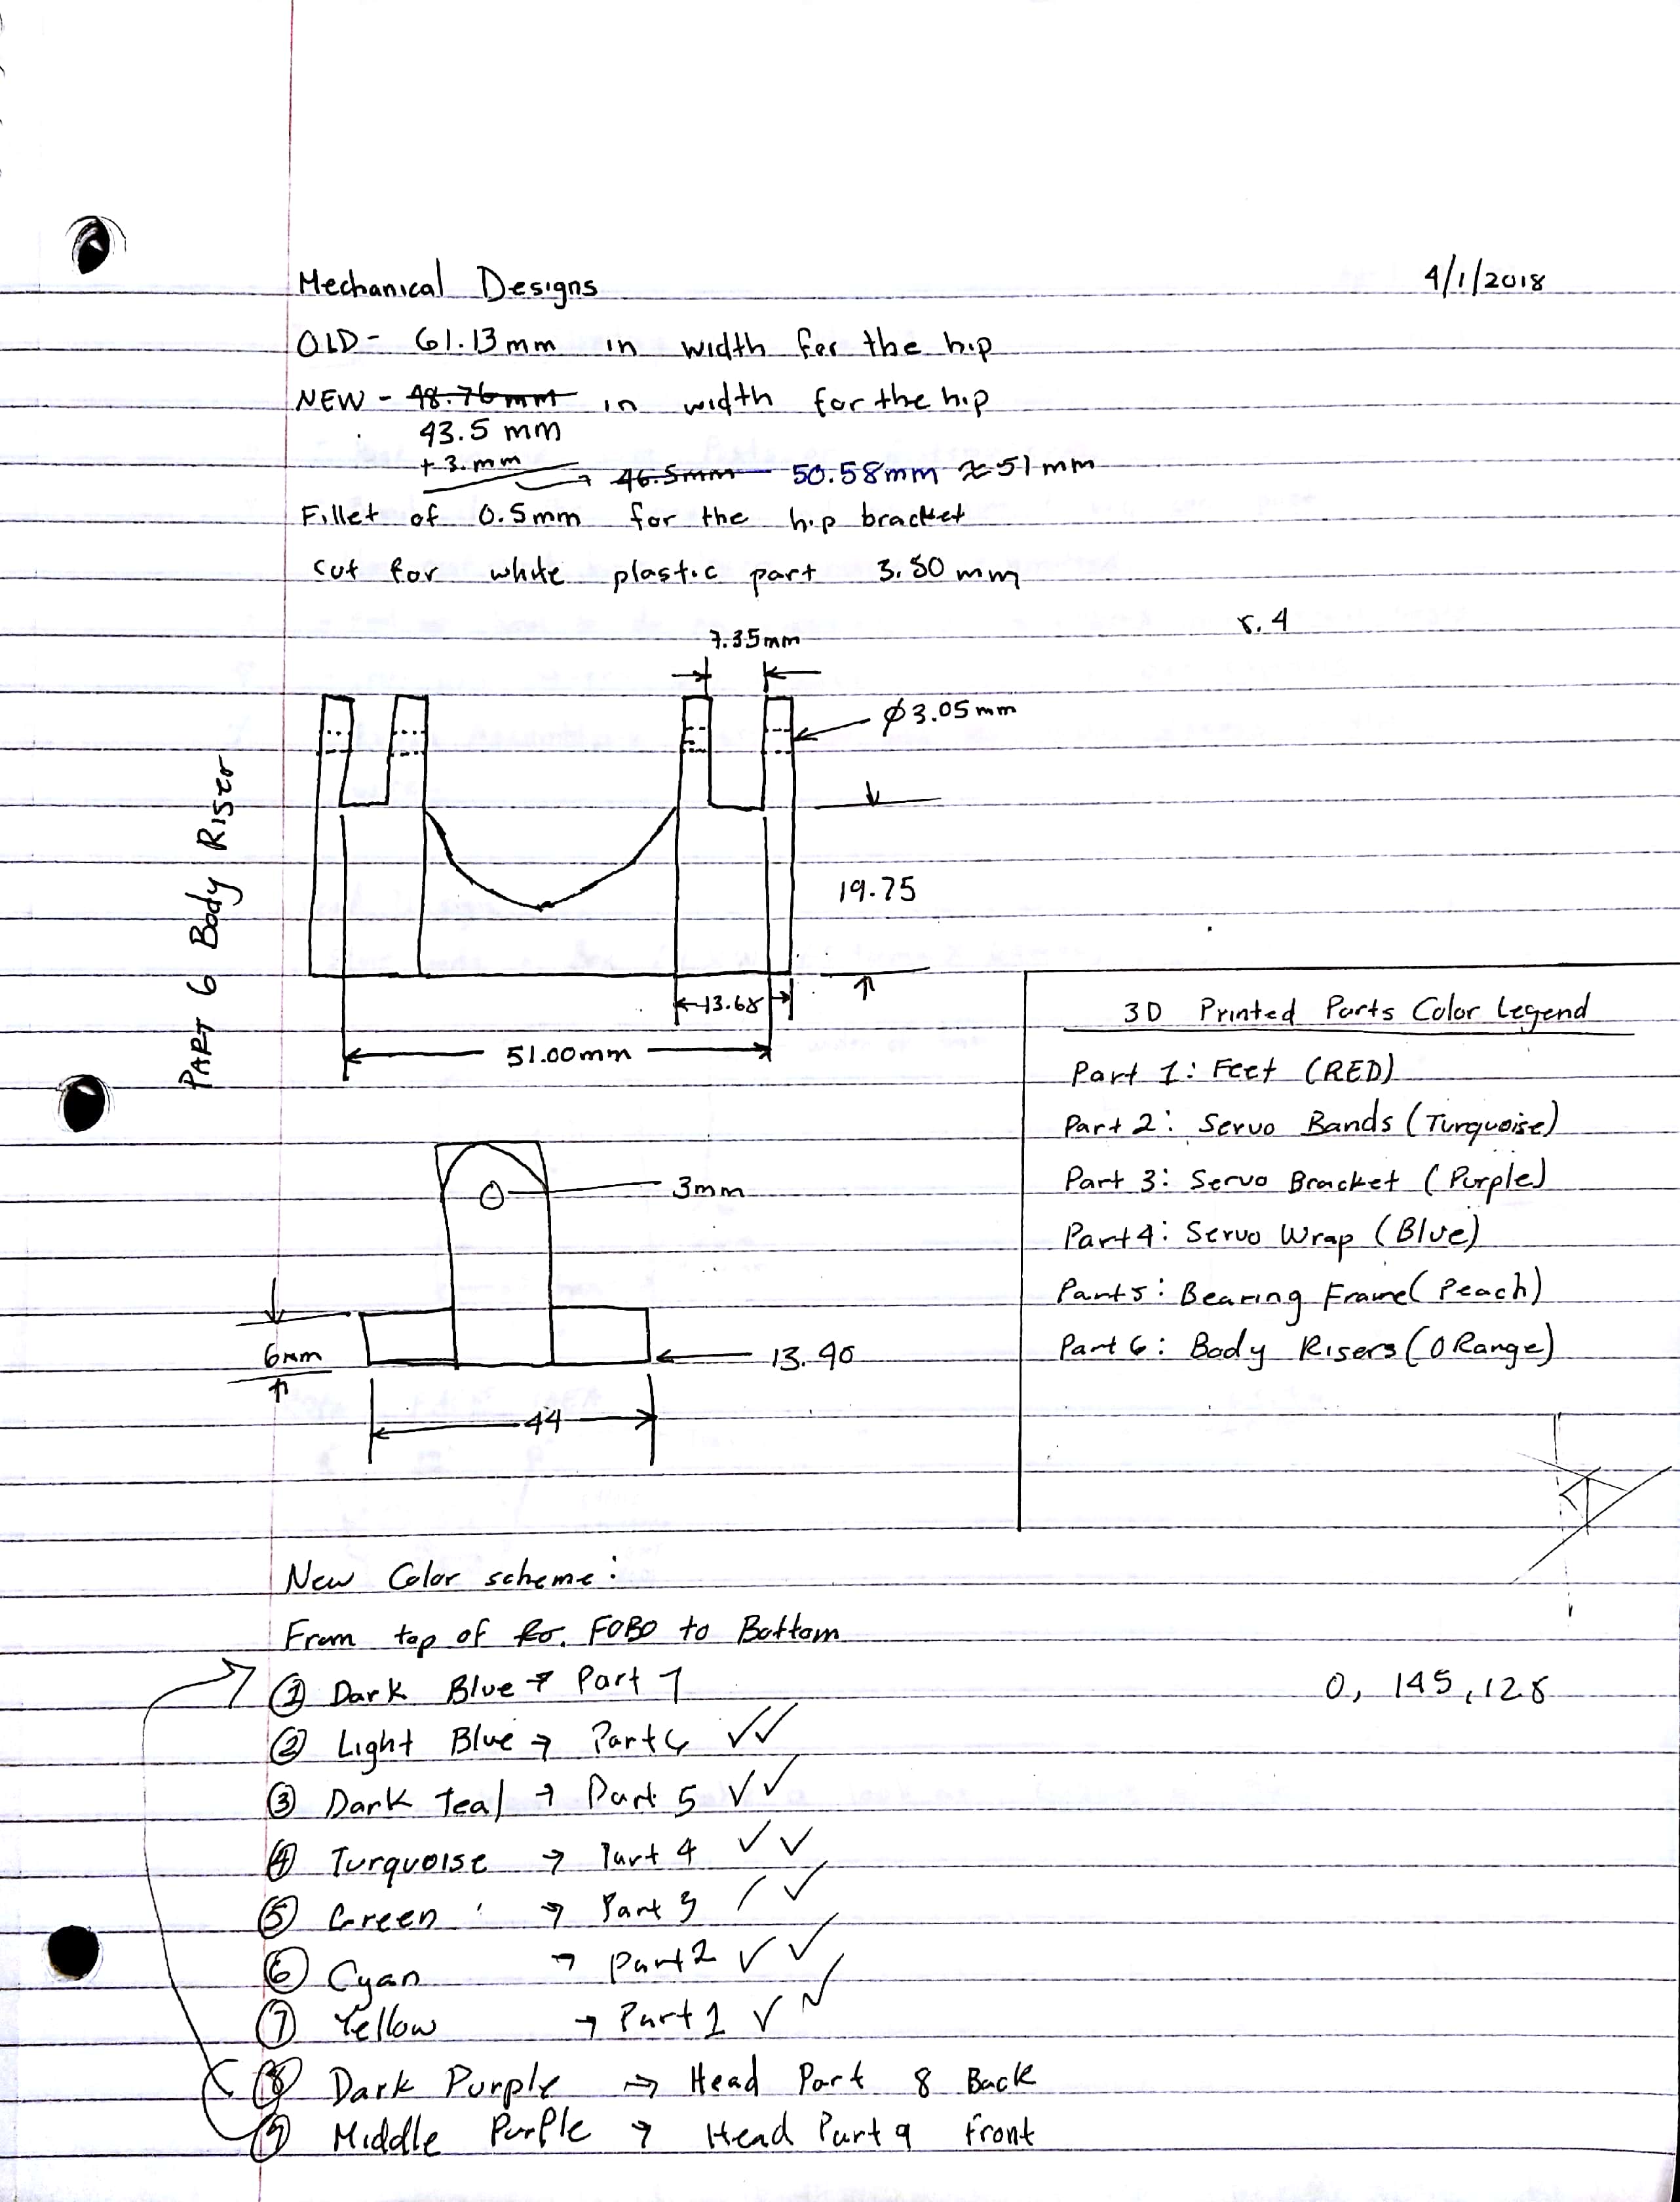 Mechanical Designs
4/1/2018
OLD - 61.13mm in width for the hip
NEW - 48.76mm in width for the hip
43.5 mm
+ 3.mm → 46.5mm 50.58mm ≈ 51 mm
Fillet of 0.5mm for the hip bracket
cut for white plastic part 3.50 mm
r.4
7.35mm
Ø3.05mm
PART 6 Body Riser
19.75
13.68
51.00mm
3mm
6mm
13.90
44
3D Printed Parts Color Legend
Part 1: Feet (RED)
Part 2: Servo Bands (Turquoise)
Part 3: Servo Bracket (Purple)
Part 4: Servo Wrap (Blue)
Part 5: Bearing Frame (Peach)
Part 6: Body Risers (ORange)
New Color scheme:
From top of Ro. FOBO to Bottom
① Dark Blue → Part 7
0, 145, 128
② Light Blue → Part 6 ✓✓
③ Dark Teal → Part 5 ✓✓
④ Turquoise → Part 4 ✓✓
⑤ Green → Part 3 ✓✓
⑥ Cyan → Part 2 ✓✓
⑦ Yellow → Part 1 ✓✓
⑧ Dark Purple → Head Part 8 Back
⑨ Middle Purple → Head Part 9 Front